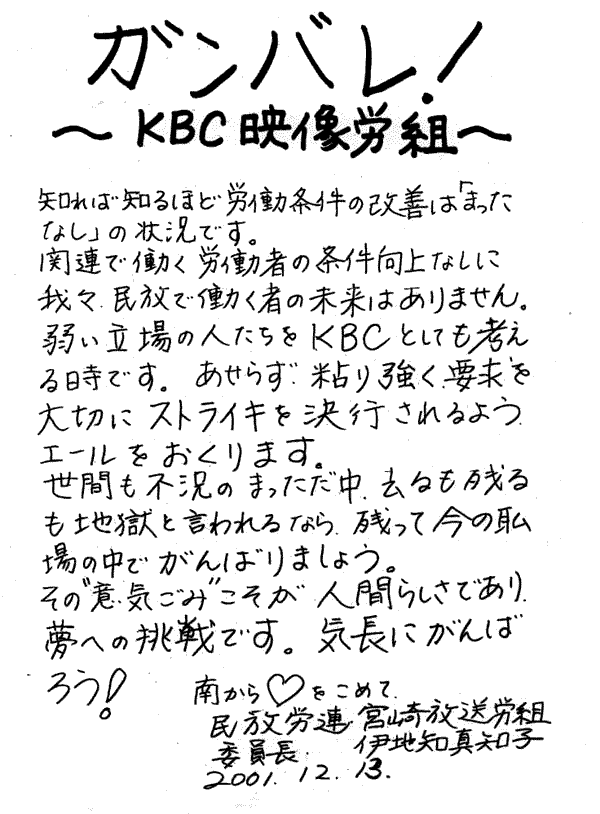 ガンバレ!
～KBC映像労組～
知れば知るほど労働条件の改善は「まった
なし」の状況です。
関連で働く労働者の条件向上なしに
我々、民放で働く者の未来はありません。
弱い立場の人たちをKBCとしても考え
る時です。あせらず、粘り強く、要求を
大切にストライキを決行されるよう、
エールをおくります。
世間も不況のまっただ中、去るも残る
も地獄と言われるなら、残って今の職
場の中でがんばりましょう。
その"意気ごみ"こそが人間らしさであり、
夢への挑戦です。気長にがんば
ろう!
南から♡をこめて、
民放労連 宮崎放送労組
委員長、伊地知真知子
2001.12.13.